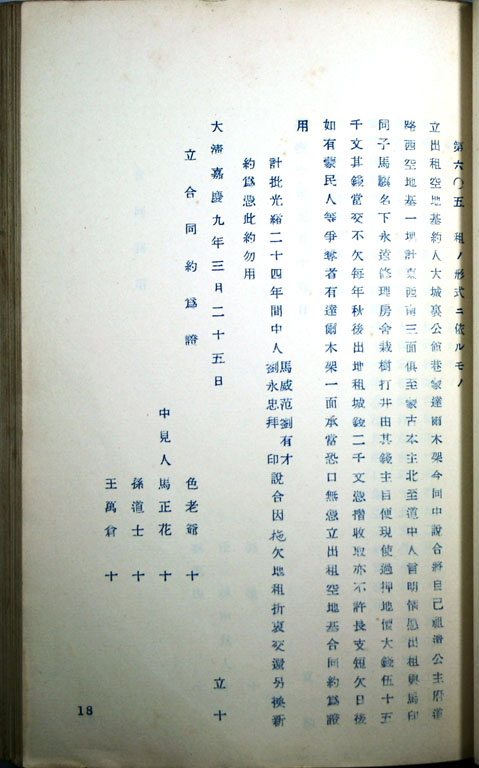 第六〇五 租ノ形式ニ依ルモノ
立出租空地基約人大城裏公館巷蒙達爾木架今同中說合將自己祖遺公主府道
路西空地基一塊計東西南三面俱至蒙古本主北至道中人言明情愿出租與馬印
同子馬驥名下永遠修理房舍栽樹打井由其錢主自便現使過押地價大錢伍十五
千文其錢當交不欠每年秋後出地租城錢二千文憑摺收取亦不許長支短欠日後
如有蒙民人等爭奪者有達爾木架一面承當恐口無憑立出租空地基合同約爲證
用
計批光緒二十四年間中人馬威范劉有才劉永忠拜印說合因拖欠地租折衷交還另換新
約爲憑此約勿用
大淸嘉慶九年三日二十五日 立十
立合同約爲證
色老爺 十
中見人馬正花 十
孫道士 十
王萬倉 十
18